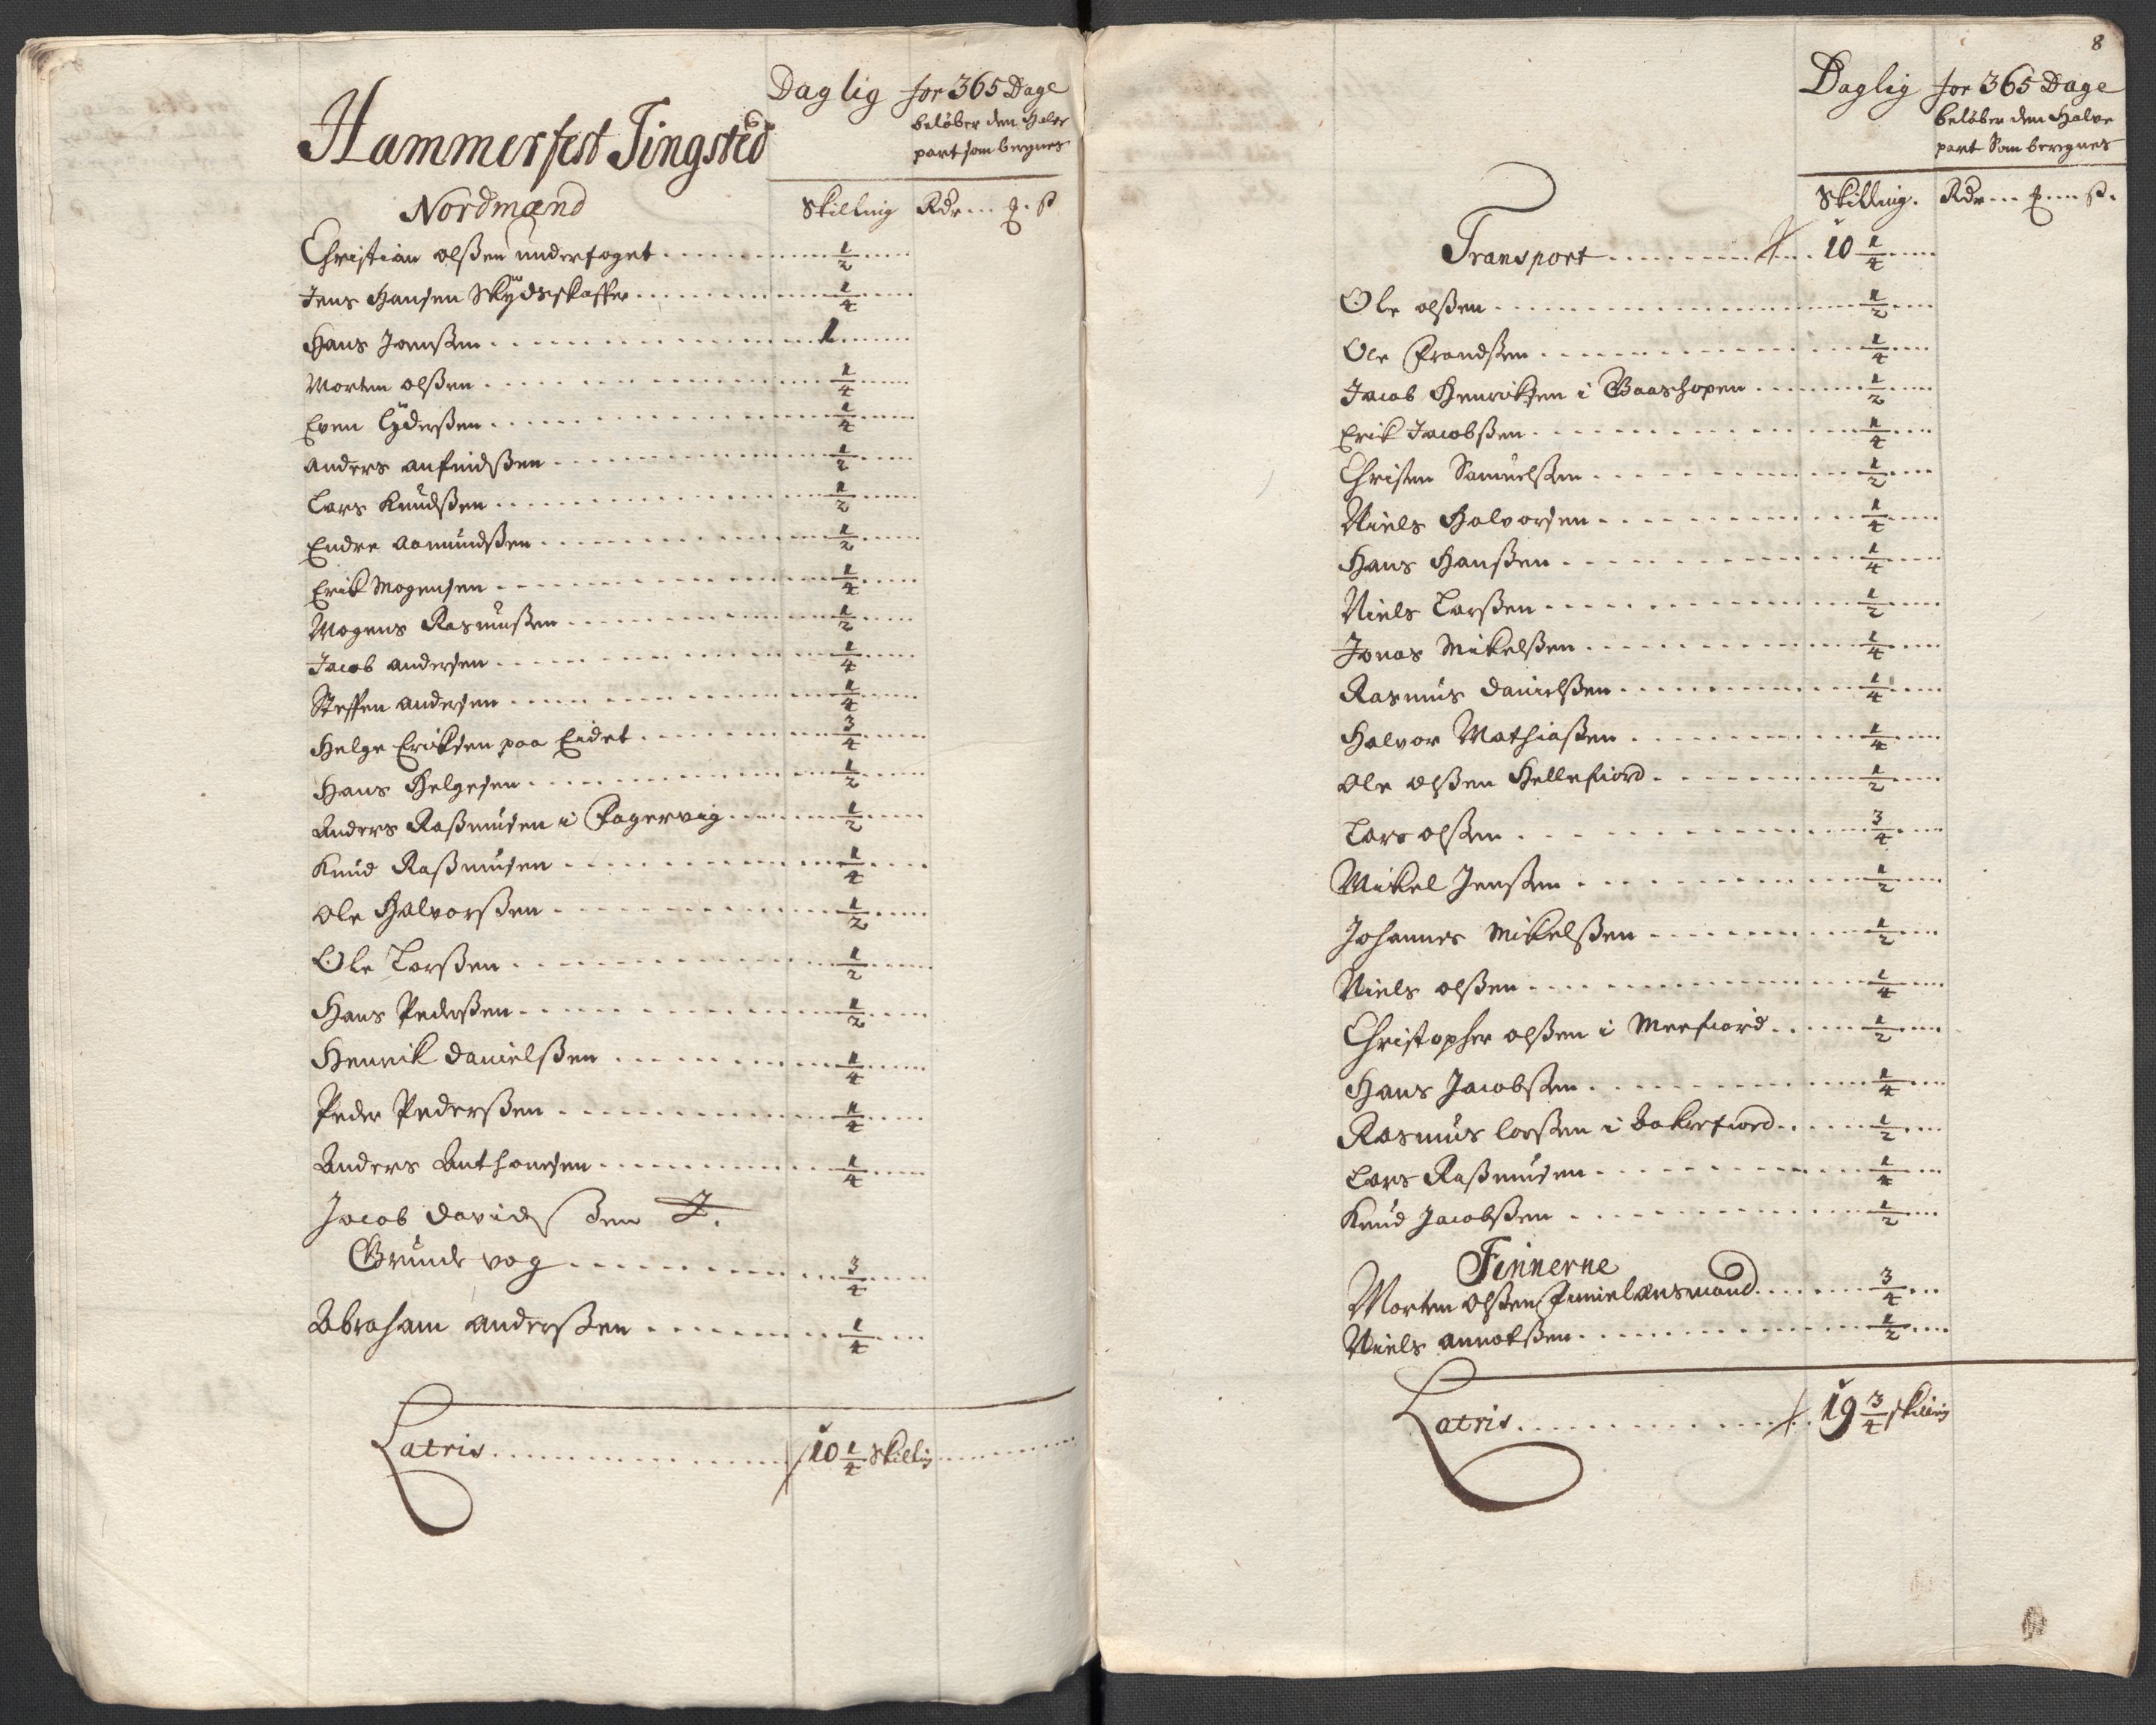 Daglig for 365 Dage
beløber den Halve
part som beregnes
Hammerfest Tingsted
Nordmænd
Skilling Rdr... ... ß
Christian olßen underfoget ... 1/2
Jens Hansen Skydsskaffer ... 1/4
Hans Joenßen ... 1
Morten olßen ... 1/4
Even Lyderßen ... 1/4
Anders anfindßen ... 1/2
Lars Knudßen ... 1/2
Endre Aamundßen ... 1/2
Erik Mogensen ... 1/4
Mogens Rasmußen ... 1/2
Jacob andersen ... 1/4
Steffen andersen ... 1/4
Helge Eriksen paa Eidet ... 3/4
Hans Helgesen ... 1/2
Anders Raßmusen i Fagervig ... 1/2
Knud Raßmusen ... 1/4
Ole Halvorßen ... 1/2
Ole Larßen ... 1/2
Hans Pederßen ... 1/2
Henrik danielßen ... 1/4
Peder Pederßen ... 1/4
Anders Anthonisen ... 1/4
Jacob davidßen J.
Grunde vog ... 3/4
Abraham anderßen ... 1/4
Latris ... 10 1/4 Skilling
8
Daglig for 365 Dage
beløber den Halve
part Som beregnes
Skilling. Rdr... ... ß.
Transport ... 10 1/4
Ole olßen ... 1/2
Ole Frandßen ... 1/4
Jacob Henrikßen i Baashopen ... 1/2
Erik Jacobßen ... 1/4
Christen Samuelßen ... 1/2
Niels Halvorsen ... 1/4
Hans Hanßen ... 1/4
Niels Larßen ... 1/2
Jonas Mikelßen ... 1/4
Rasmus danielßen ... 1/4
Halvor Mathiaßen ... 1/4
Ole olßen Hellefiord ... 1/2
Lars olßen ... 3/4
Mikel Jenßen ... 1/2
Johannes Mikelßen ... 1/2
Niels olßen ... 1/4
Christopher olßen i Meefiord ... 1/2
Hans Jacobßen ... 1/4
Rasmus larßen i Bakerfiord ... 1/2
Lars Raßmusen ... 1/4
Knud Jacobßen ... 1/2
Finnerne
Morten olßen Finnelænsmand ... 3/4
Niels ... 1/2
Latris ... 19 3/4 skilling